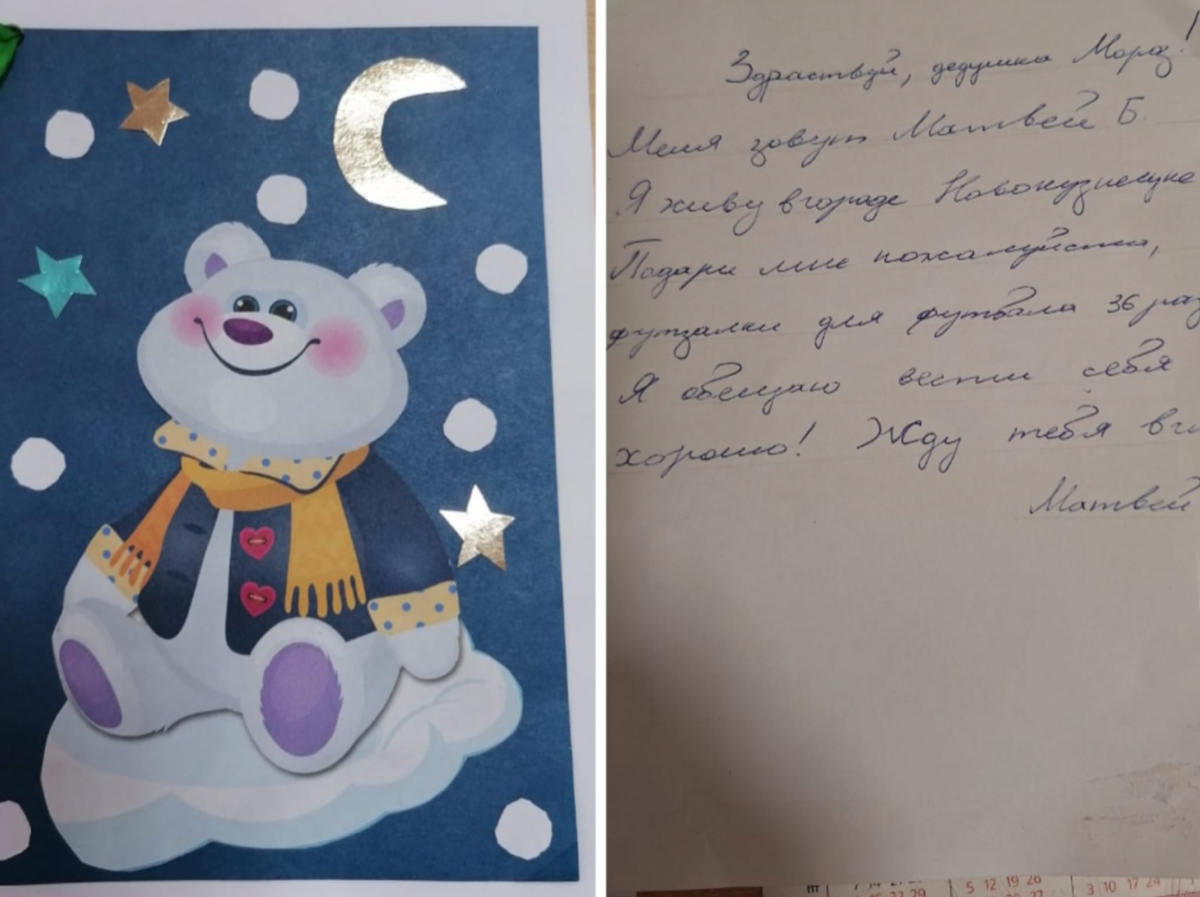 Здраствуй, дедушка Мороз!
Меня зовут Матвей Б.
Я живу в городе Новокузнецке
Подари мне пожалуйста,
футзалки для футбола 36 раз
Я обещаю вести себя
хорошо! Жду тебя в г
Матвей
пт 7 14 21 28 5 12 19 26 3 10 17 24